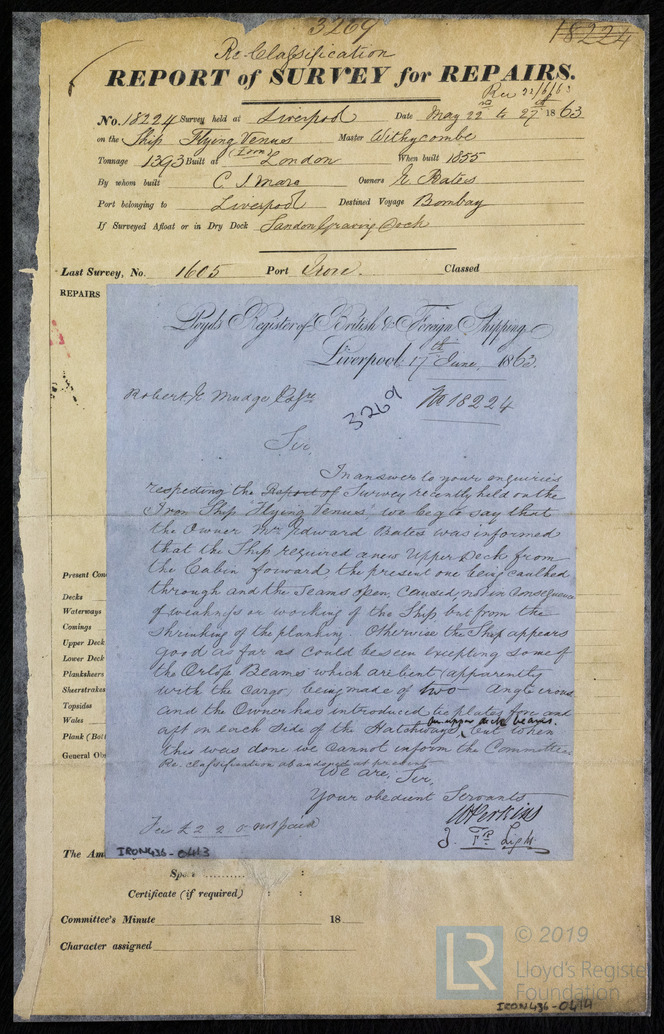 3269
18224
Re Classification
REPORT of SURVEY for REPAIRS.
Rec 22/6/63
No. 18224 Survey held at Liverpool Date May 22nd to 27th 1863
on the Ship Flying Venus Master Withycombe
Tonnage 1393 Built at (Iron) London When built 1855
By whom built C J Mare Owners E. Bates
Port belonging to Liverpool Destined Voyage Bombay
If Surveyed Afloat or in Dry Dock Sandon Graving Dock
Last Survey, No. 1605 Port Classed
REPAIRS
Lloyds Register of British & Foreign Shipping.
Liverpool 17th June, 1863.
Robert G Mudge Esqre
3269
No 18224
Sir,
In answer to your enquiries
respecting the Report of Survey recently held on the
Iron Ship "Flying Venus" we beg to say that
the Owner Mr Edward Bates was informed
that the Ship required a new Upper Deck from
the Cabin forward the present one being caulked
through and the Seams open, caused, not in consequence
of weakness or working of the Ship but from the
shrinking of the planking. Otherwise the Ship appears
good as far as could be seen excepting some of
the Orlop Beams which are bent (apparently
with the Cargo, being made of two Angle irons
and the Owner has introduced tie plates fore and
on upper deck beams.
aft on each side of the Hatchways, but when
this was done we cannot inform the Committee.
Re. classification abandoned at present
We are, Sir,
Your obedient Servants
W Perkins
J. Light
Fee £2 2 0 not paid
IRON436-0413
Present Con
Decks
Waterways
Comings
Upper Deck
Lower Deck
Planksheers
Sheerstrakes
Topsides
Wales
Plank (Bot
General Ob
The Am
Spe :
Certificate (if required) : :
Committee's Minute 18
Character assigned
LR © 2019
Lloyd's Registe
Foundation
IRON436-0414